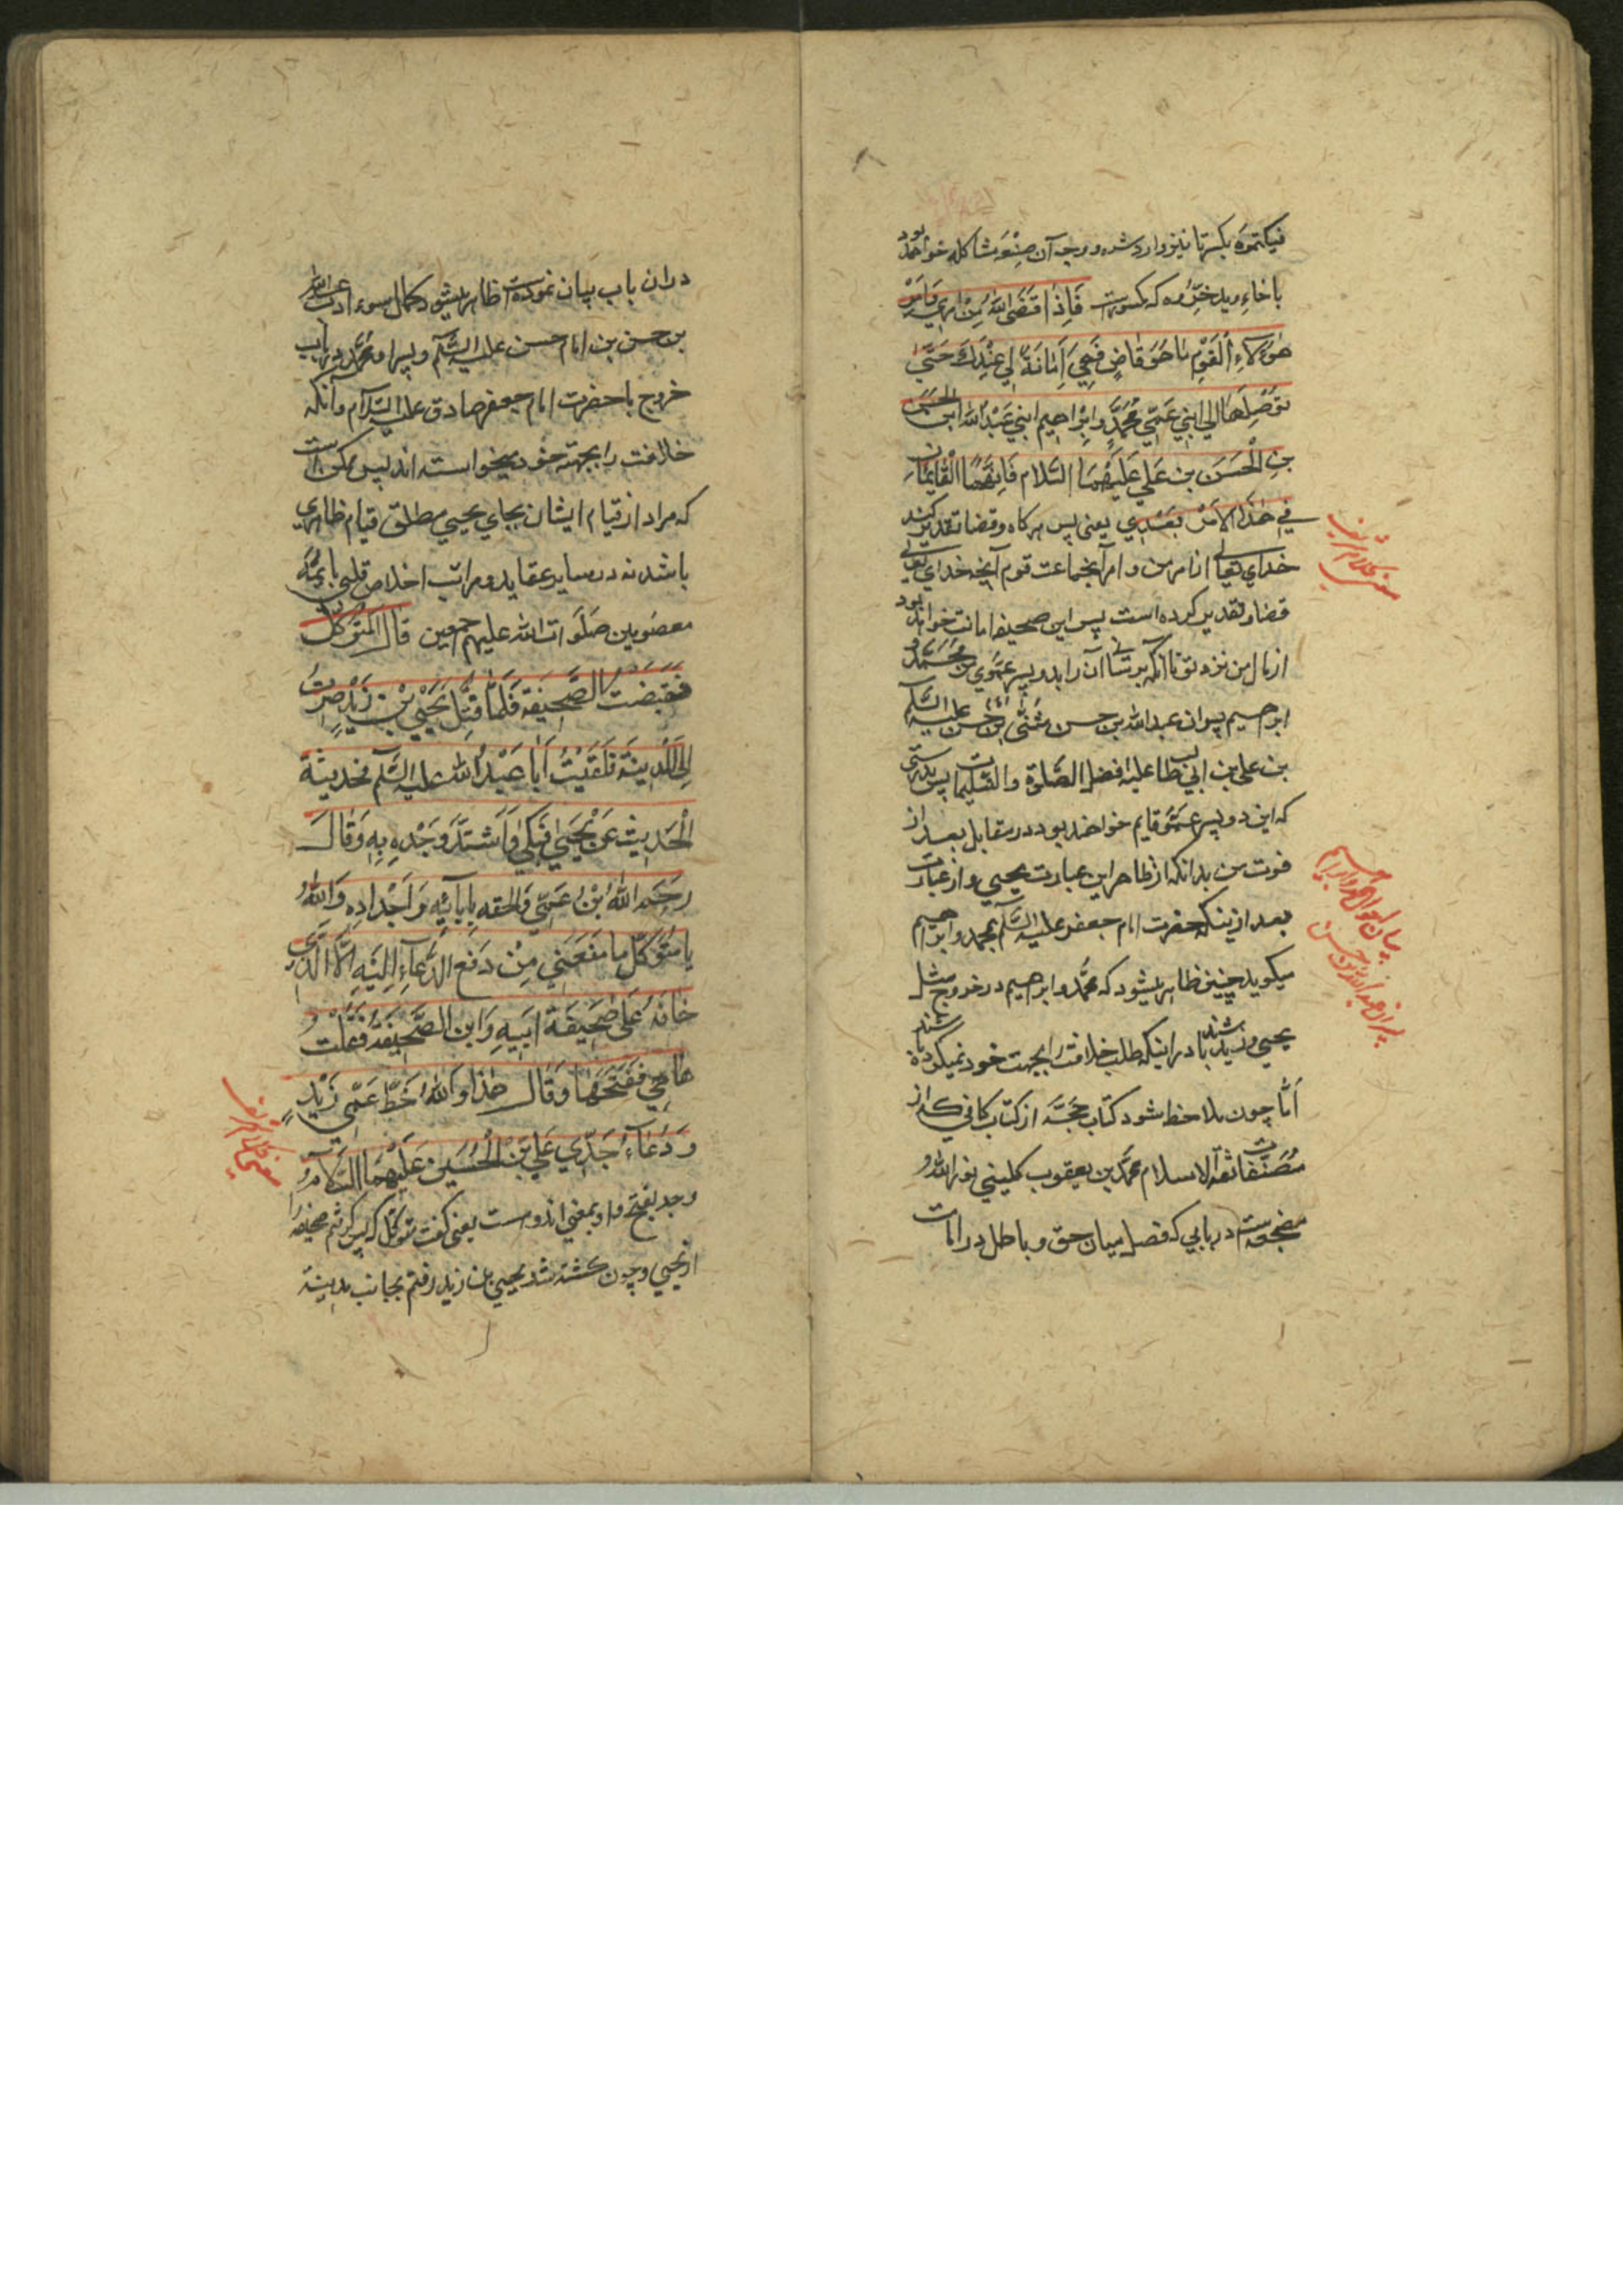 فیکتموه بکسر تا نیز وارد شده و وجه آن صنعة مشاکله خواهد بود
با خاء ویدخروه که مکسورست فَاِذا قَضَی اللهُ مِنْ امری وَ اَمْرِ
هٰؤُلاءِ اَلْقَوْمِ مٰا هُوَ قٰاضٍ فَهِیَ اَمٰانَةٌ لی عِنْدَكَ حَتّیٰ
تُوصِلَهٰا اِلی ابْنَیْ عَمّی مُحَمَّدٍ وَ اِبْراهیم ابْنَیْ عَبْدِ الله ابْن الحَسَن
بنِ الْحَسَن بن عَلی عَلَیْهِمَا السَّلام فَاِنَّهُمَا الْقٰایِمٰانِ
فی هٰذَا الاَمْرِ بَعْدی یعنی پس هر کاه و قضا تقدیر کند
خدای تعالی از امر من و امر آنجماعت قوم آنچه خدای تعالی
قضا و تقدیر کرده است پس این صحیفه امانت خواهد بود
از مال من نزد تو تا آنکه برسانی آن را بدو پسر عموی من محمّد و
ابرهیم پسران عبدالله بن حسن مثنّی بن امام حسن علیه السّلم
بن علی بن ابی طالب علیه افضل الصّلوة و التّسلیمات پس بدرستی
که این دو پسر عمّ قایم خواهند بود در مقابل بعد از
فوت من بدانکه از ظاهر این عبارت یحیی و از عبارت
بعد ازینکه حضرت امام جعفر علیه السّلم بمحمد و ابراهیم
میکوید چنین ظاهر میشود که محمّد و ابرهیم در خروج مثل
یحیی و زید باشند در اینکه طلب خلافت را بجهت خود نمیکرده باشند
امّا چون ملاحظه شود کتاب حجّة از کتاب کافی که از
مصنّفات ثقة الاسلام محمّد بن یعقوب کلینی نور الله
مضجعه است در بابی که فصل میان حق و باطل در امامت
معنی کلام شریف
بیان احوال محمد و ابراهیم
پسران عبدالله بن حسن
در ان باب بیان نموده است ظاهر میشود کمال سوء ادب عبدالله
بن حسن بن امام حسن علیه السّلم و پسر او محمّد در باب
خروج با حضرت امام جعفر صادق علیه السّلام و آنکه
خلافت را بجهة خود میخواسته اند پس ممکن است
که مراد از قیام ایشان بجای یحیی مطلق قیام ظاهری
باشد نه در سایر عقاید و مراتب اخلاص قلبی بایمّهٔ
معصومین صَلَوات الله علیهم اجمعین قٰالَ الْمُتَوَکِّل
فَقَبَضْتُ الصَّحیفَةَ فَلَمّٰا قُتِلَ یَحْیَی بْنُ زَیْدٍ صِرْتُ
اِلَی الْمَدینَة فَلَقیتُ اَبٰا عَبْدِ الله علیه السّلم فحدّثتهُ
الْحَدیثَ عَنْ یَحْییٰ فَبَکیٰ وَ اشْتَدَّ وَجْدُه بِهِ وَ قٰالَ
رَحِمَ اللهُ ابْنَ عَمّی وَ الحقه بِاٰبٰائِهِ وَ اَجْدادِهِ وَ اللهِ
یٰا مُتَوَکِّلُ مٰا مَنَعَنی مِنْ دَفْعِ الدُّعٰاءِ اِلَیْهِ اِلّا الَّذی
خٰافَهُ عَلیٰ صَحیفَةِ اَبیهِ وَ این الصَّحیفَةُ فَقُلْتُ
هٰا هِیَ فَفَتَحَهٰا وَ قٰالَ هٰذا وَ اللهِ خَطُّ عَمّی زَیْدٍ
وَ دُعٰآءُ جَدّی عَلیِّ بْنِ الْحُسَیْن عَلَیْهِمَا السَّلامُ
وجد بفتح واو بمعنی اندوه است یعنی گفت متوکّل که پس کرفتم صحیفه را
از یحیی و چون کشته شد یحیی بن زید رفتم بجانب مدینهٔ
معنی کلام شریف